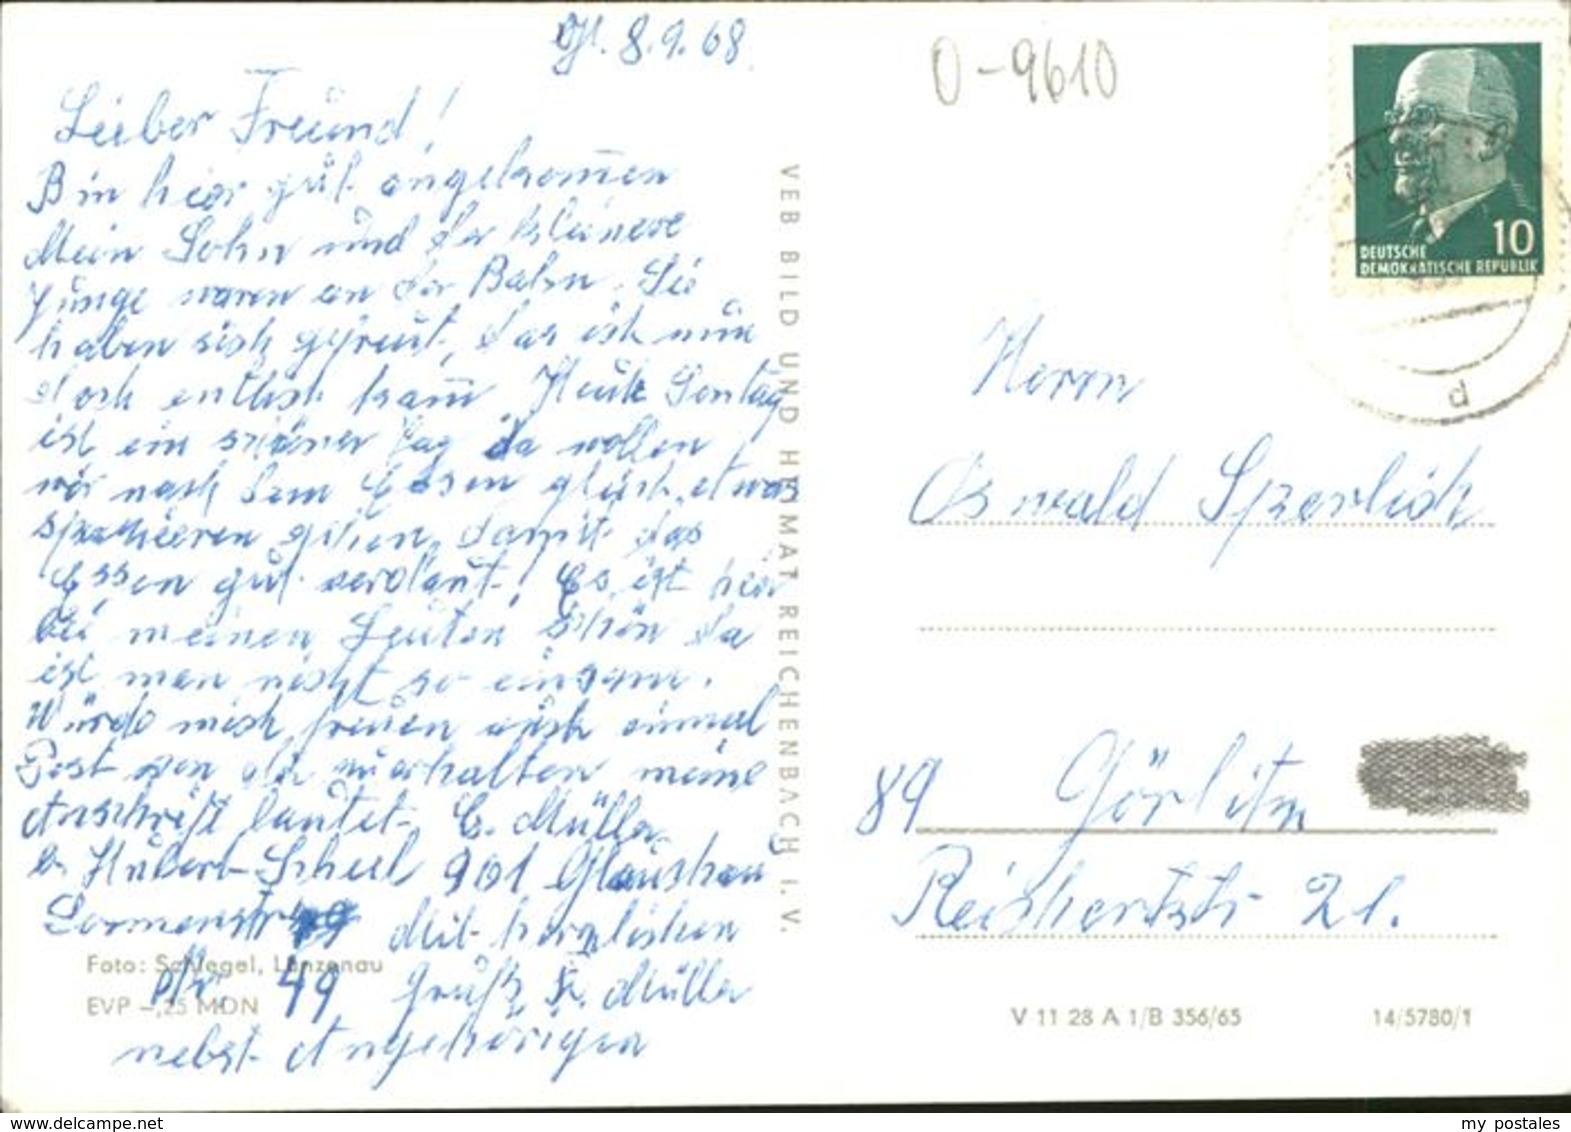 Gl. 8.9.68
Lieber Freund!
Bin hier gut angekommen
Mein Sohn und der kleinere
Junge waren an der Bahn. Sie
haben sich gefreut, das ich nun
doch entlich kam Heute Sontag
ist ein schöner Tag da wollen
wir nach dem Essen gleich etwas
spazieeren gehen, damit das
Essen gut verdaut! Es ist hier
bei meinen Leuten schön da
ist man nicht so einsam.
Würde mich freuen auch einmal
Post von dir zuerhalten meine
Anschrift lautet E. Müller
b Hubert Scheel 961 Glauchau
49 Mit herzlichen
Nr. 49 Gruß, E. Müller
nebst Angehörigen
Foto: Schlegel, Lunzenau
EVP –,25 MDN
VEB BILD UND HEIMAT REICHENBACH I. V.
0-9610
10
DEUTSCHE
DEMOKRATISCHE REPUBLIK
d
Herrn
Oswald Sperlich
89 Görlitz
Reichertstr 21.
V 11 28 A 1/B 356/65
14/5780/1
my postales